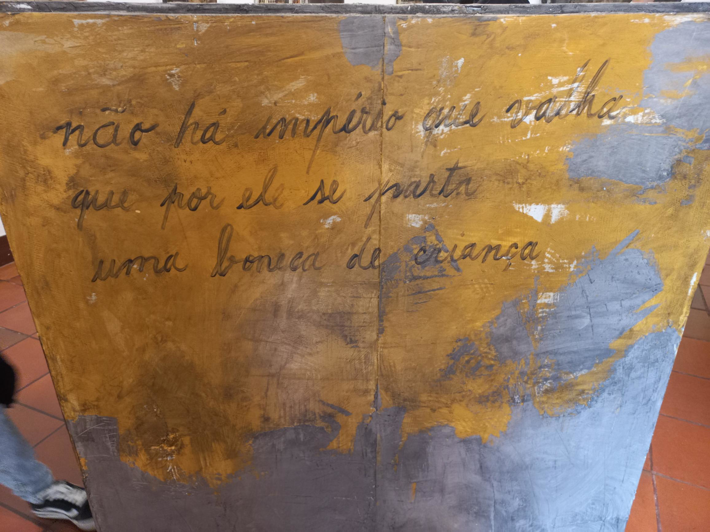 não há império que valha
que por ele se parta
uma boneca de criança